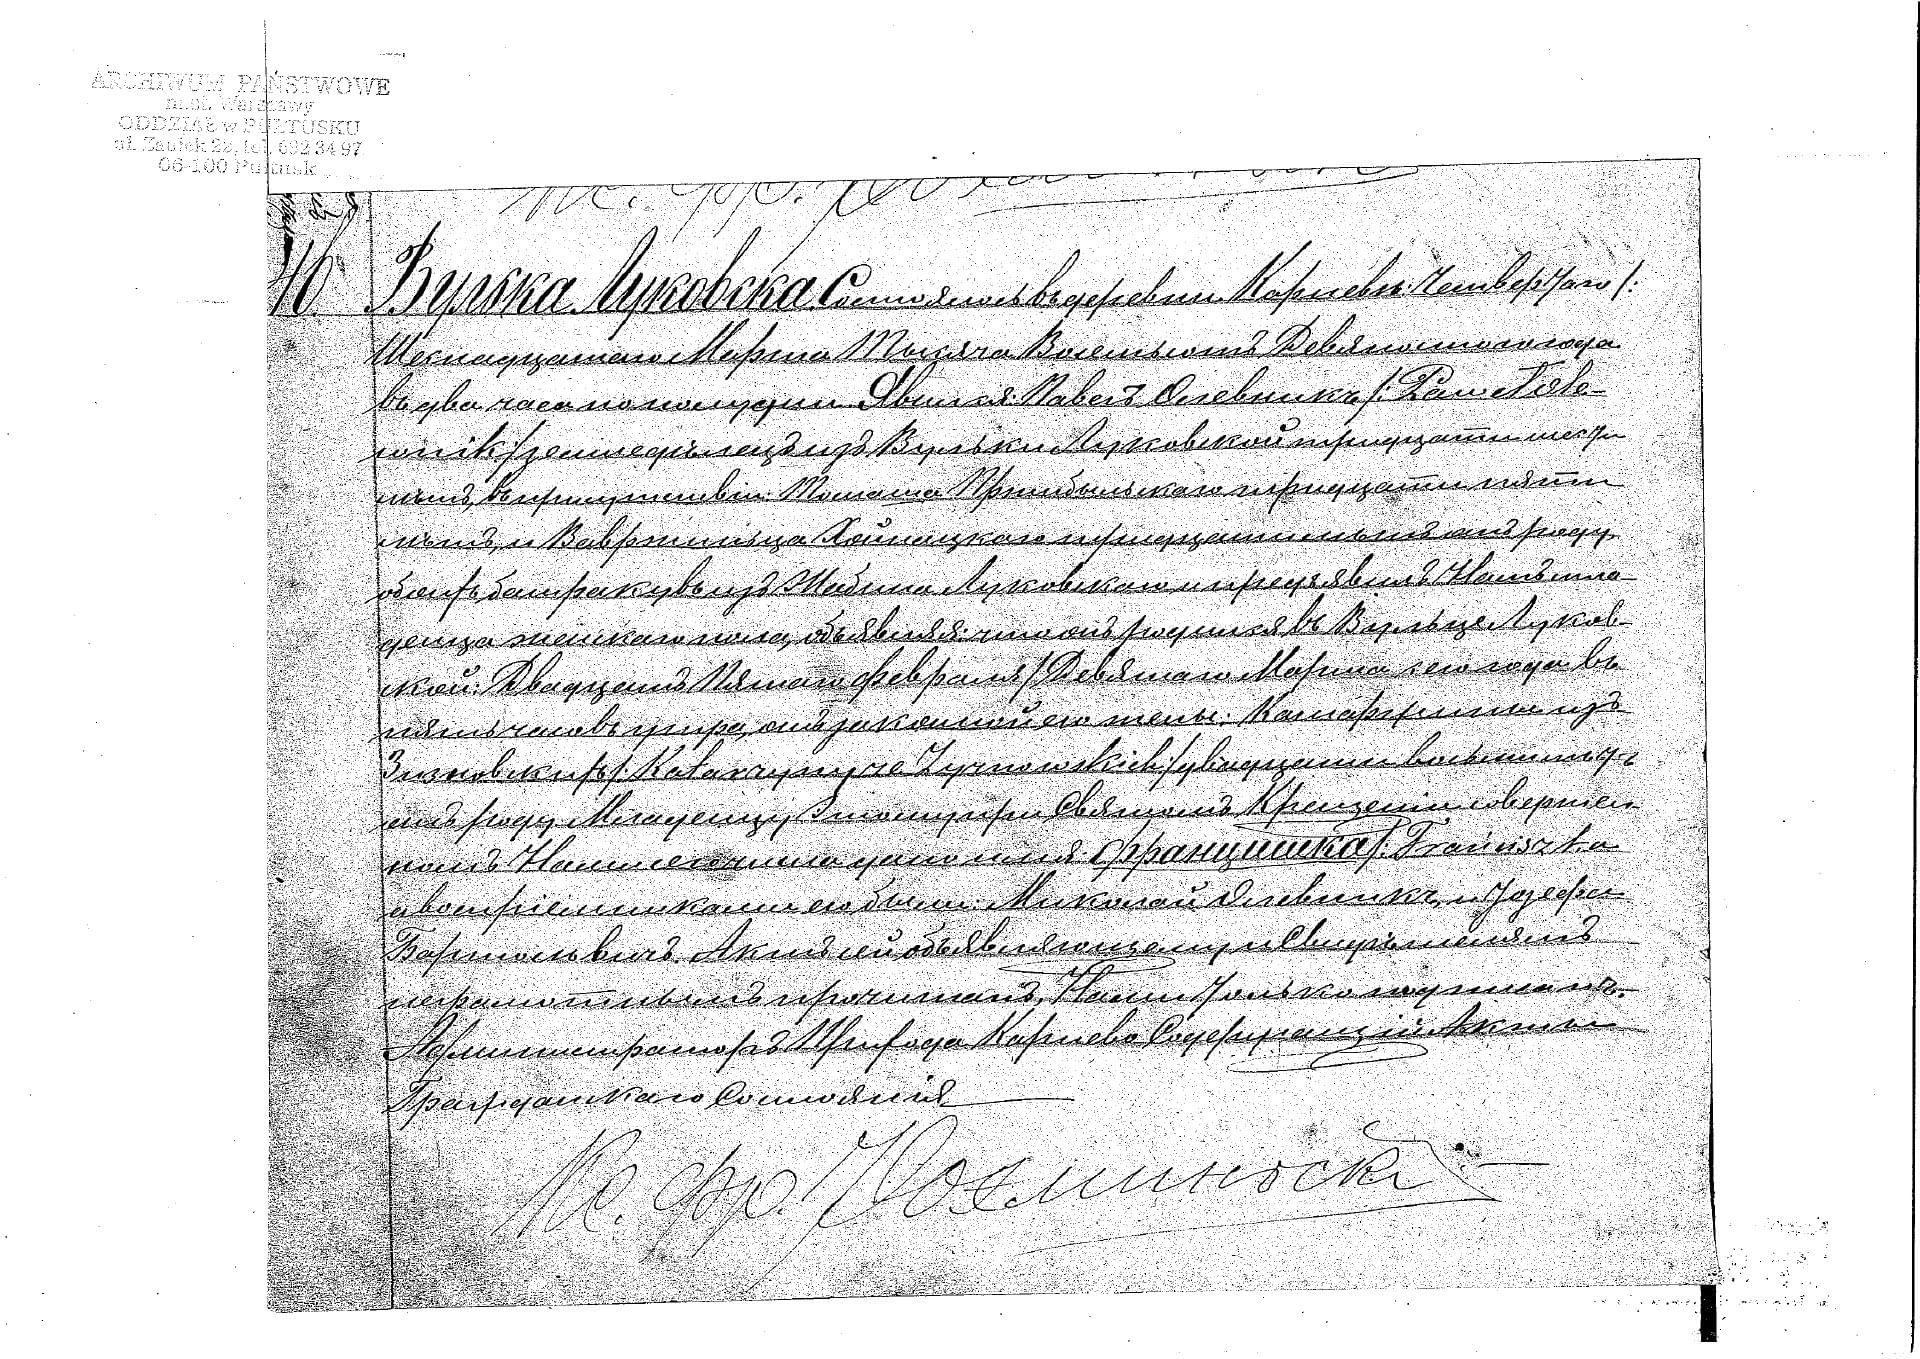 ARCHIWUM PAŃSTWOWE
m.st. Warszawy
ODDZIAŁ w PUŁTUSKU
ul. Zaułek 22, tel. 692 34 97
06-100 Pułtusk
46.
Вулька Луковска. Состоялось въ деревни Карневѣ: Четвертаго /:
Шестнадцатаго Марта Тысяча Восемьсотъ Девяностого года
въ два часа по полудни. Явился: Павелъ Олевникъ /: Paweł Ole-
wnik :/ земледѣлецъ изъ Вульки Луковской тридцати шести
лѣтъ, въ присутствіи: Томаша Пржибыльскаго тридцати пяти
лѣтъ, и Вавржиньца Хойнацкаго тридцати лѣтъ отъ роду,
обоихъ батраковъ изъ Жабина Луковскаго, и предъявилъ Намъ мла-
денца женскаго пола, объявляя: что онъ родился въ Вульце Луков-
ской: Двадцать Пятаго Февраля /: Девятаго Марта сего года въ
пять часовъ утра, отъ законной его жены: Катаржины изъ
Зызновскихъ /: Katarzyny ze Zyznowskich :/ двадцати восьми лѣтъ
отъ роду. Младенцу Этому при Святомъ Крещеніи совершен-
номъ Нами сего числа дано имя: Францишка /: Franciszka
а воспріемниками его были: Миколай Олевникъ, и Юзефа
Бартольвичъ. Актъ сей объявляющему и Свидѣтелямъ
неграмотнымъ прочитанъ, Нами только подписанъ.
Администраторъ Прихода Карнево Содержащій Акты
Гражданскаго Состоянія
Кс. Фр.